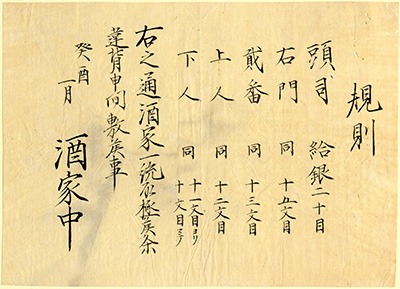 規則
頭司 給銀二十目
右門 同 十五文目
貮番 同 十三文目
上人 同 十二文目
下人 同 十一文目ヨリ
十文目マテ
右之通酒家一統相極候条
違背申間敷候事
癸酉
一月
酒家中